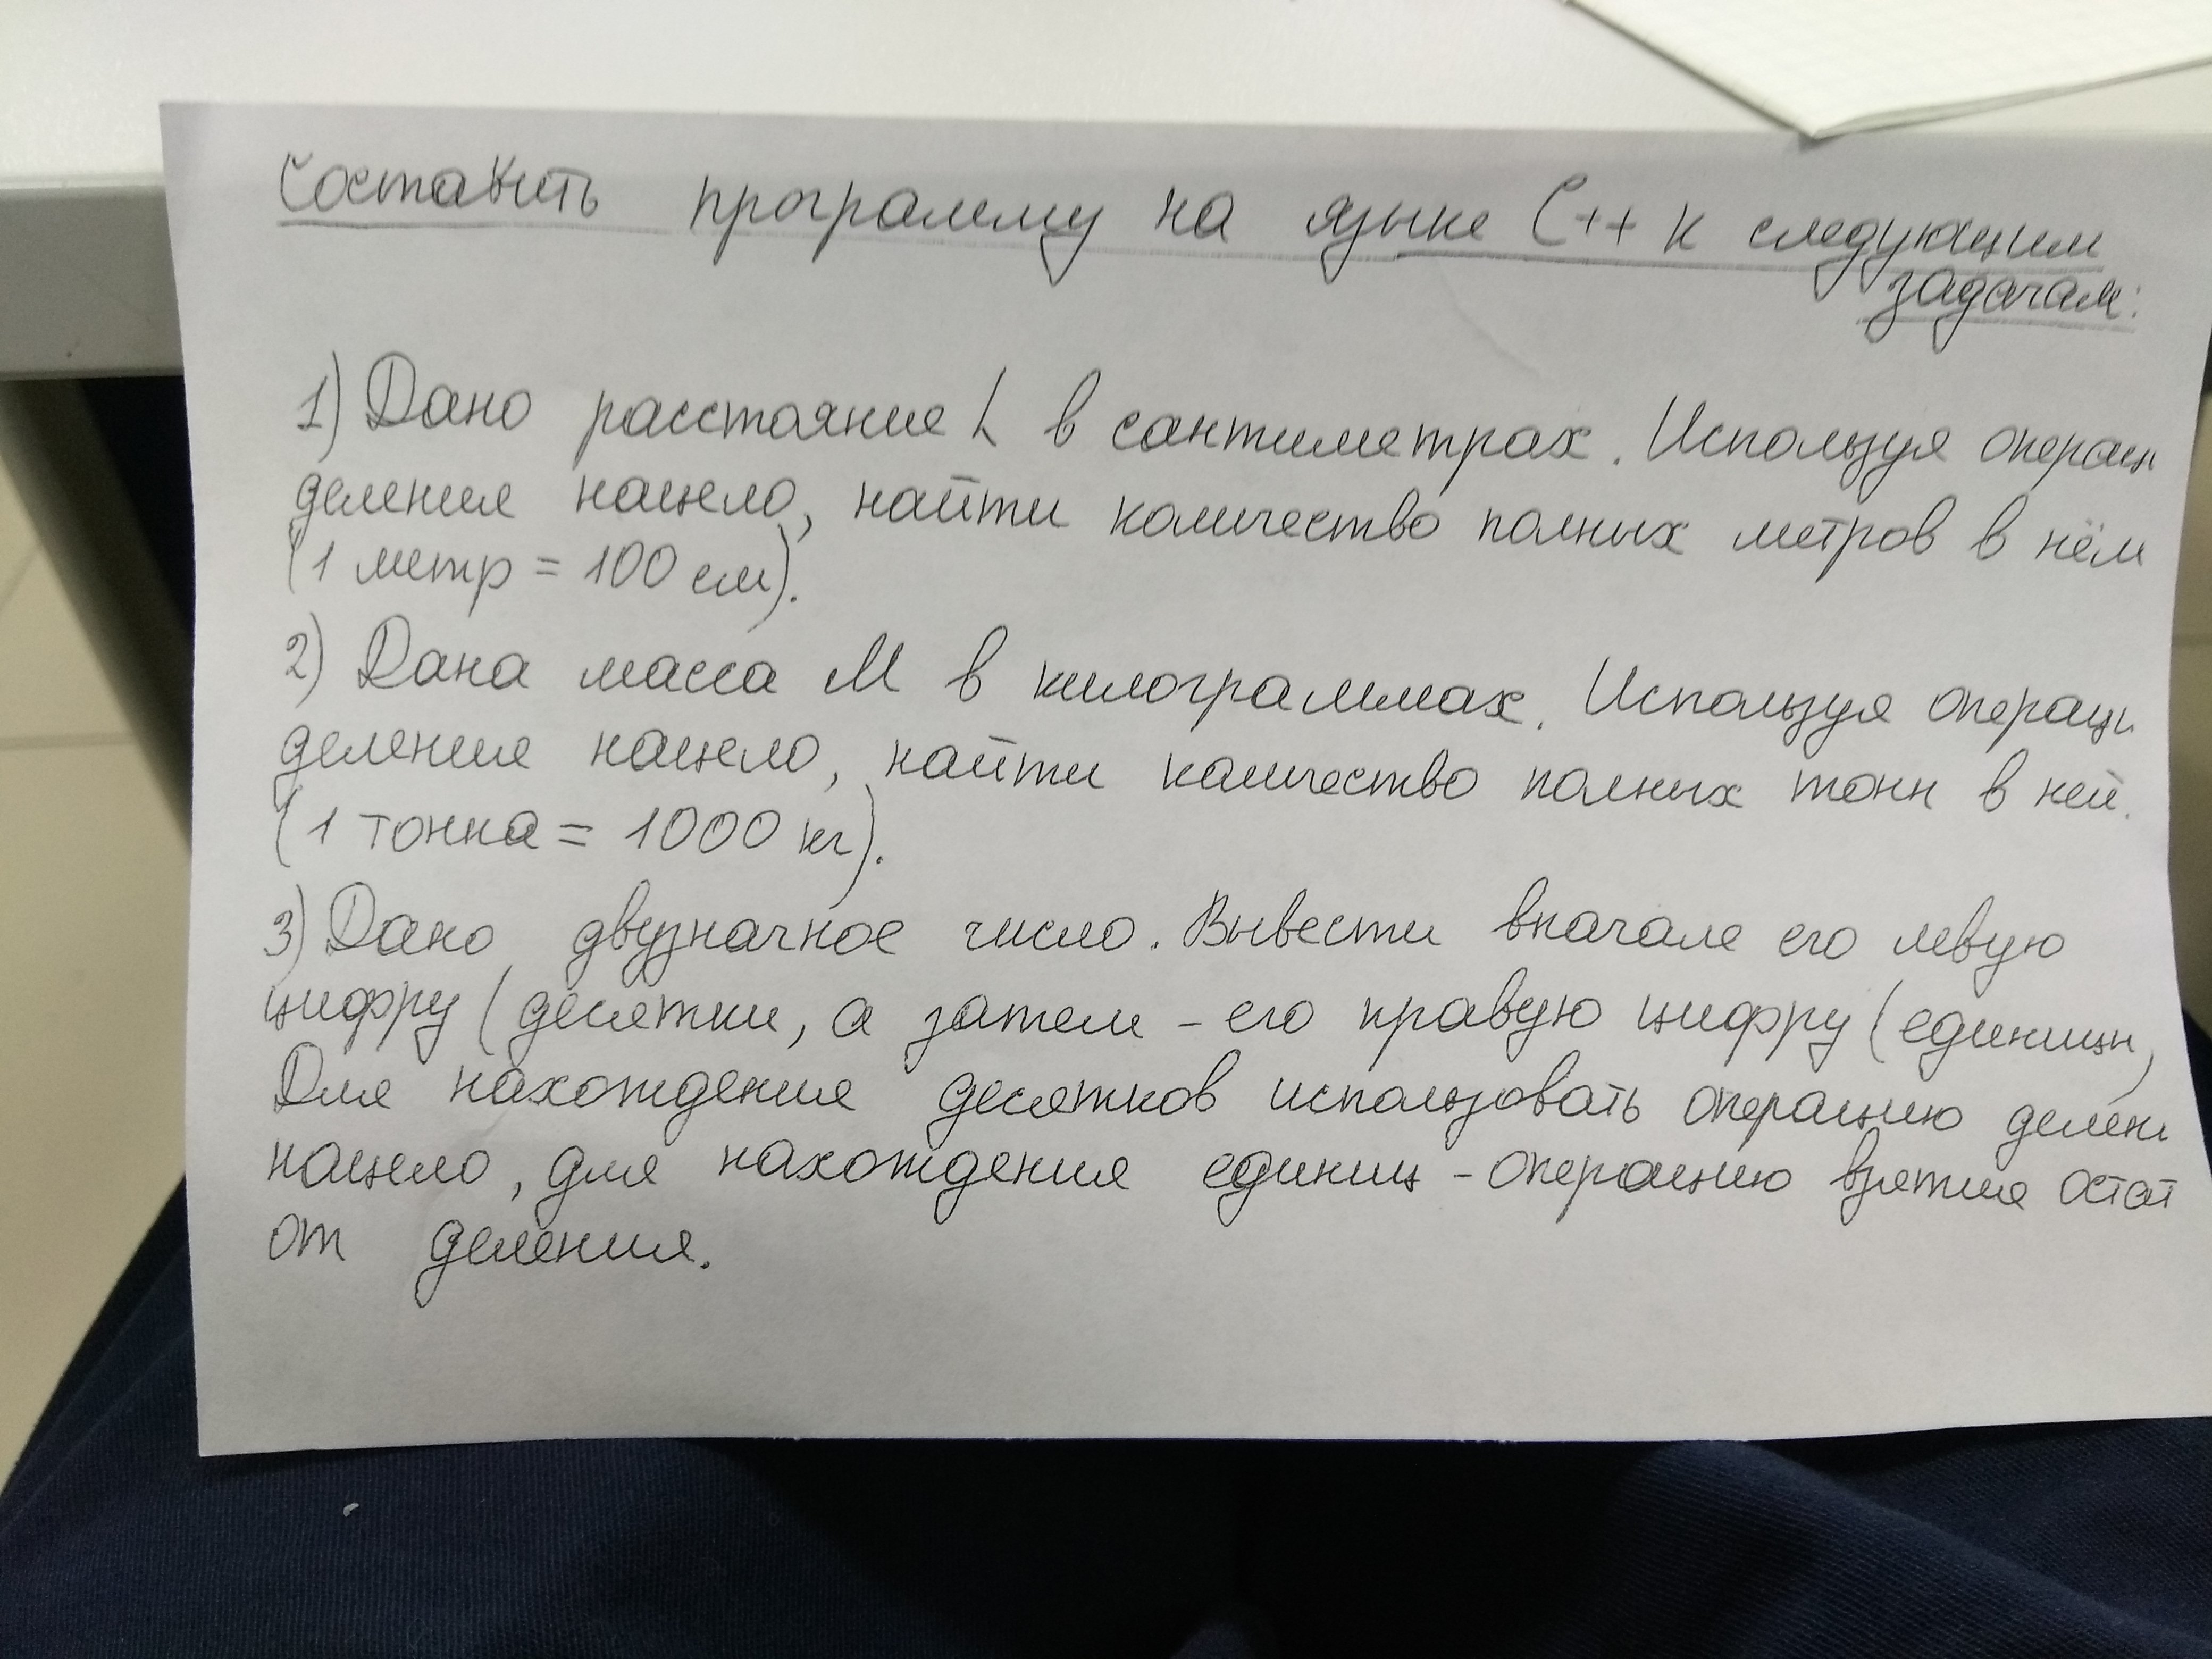 Составить программу на языке C++ к следующим
задачам:
1) Дано расстояние L в сантиметрах. Используя операци
деления нацело, найти количество полных метров в нём
(1 метр = 100 см).
2) Дана масса М в килограммах. Используя операци
деление нацело, найти количество полных тонн в ней.
(1 тонна = 1000 кг).
3) Дано двузначное число. Вывести вначале его левую
цифру (десятки, а затем - его правую цифру (единицы)
Для нахождения десятков использовать операцию делени
нацело, для нахождения единиц - операцию взятия остат
от деления.